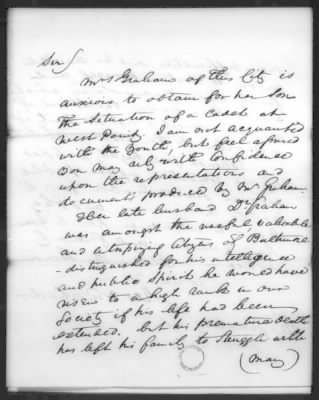 Sir
Mrs Graham of this City is
anxious to obtain for her Son
the Situation of a Cadet at
West Point. I am not acquainted
with the Youth, but feel assured
You may rely with confidence
upon the representations and
documents produced by Mrs Graham.
Her late husband Dr Graham
was amongst the useful valuable
and enterprizing Citizens of Baltimore
- distinguished for his intelligence
and public Spirit he would have
risen to a high rank in our
Society if his life had been
extended. but his premature death
has left his family to Struggle with
(may)